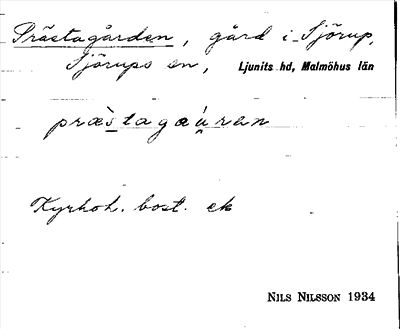 Prästagården, gård i Sjörup,
Sjörups sn, Ljunits hd, Malmöhus län
Kyrkoh. bost. ek
NILS NILSSON 1934